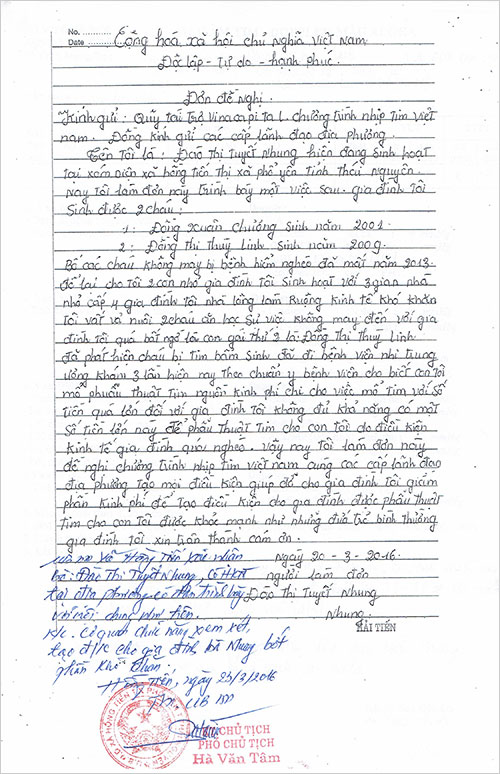 No. ............
Date ............
Cộng hoá xã hội chủ nghĩa Việt Nam.
Độ lập - Tự do - hạnh phúc.
Đơn đề nghị.
Kính gửi : Quỹ tài trợ Vina ca pi ta L. chương trình nhịp tim Việt
nam. Đồng kính gửi các cấp lãnh đạo địa phương.
Tên tôi là : Đào Thị Tuyết Nhung hiện đang sinh hoạt
tại xóm Diện xã hồng tiến thị xã phổ yên tỉnh thái nguyên.
Nay tôi làm đơn này trình bày một việc sau. gia đình tôi
sinh được 2 cháu:
1: Đồng xuân chưởng sinh năm 2001.
2: Đồng thị thuỳ Linh sinh năm 2009.
Bố các cháu không may bị bệnh hiểm nghèo đã mất năm 2013.
để lại cho tôi 2 con nhỏ gia đình tôi sinh hoạt với 3 gian nhà
nhỏ cấp 4 gia đình tôi nhà lông làm Ruộng kinh tế khó khăn
tôi vất vả nuôi 2 cháu ăn học sự việc không may đến với gia
đình tôi quá bất ngờ là con gái thứ 2 là: Đồng Thị Thuỳ Linh
đã phát hiện cháu bị tim bẩm sinh đã đi bệnh viện nhi trung
ương khám 3 lần hiện nay theo chuẩn y bệnh viên cho biết con tôi
mổ phuẫu thuật tim nguồn kinh phí chi cho việc mổ tim với số
tiền quá lớn đối với gia đình tôi không đủ khả năng có một
số tiền lớn này để phẫu thuật tim cho con tôi do điều kiện
kinh tế gia đình quá nghèo. vậy nay tôi làm đơn này
đề nghị chương trình nhịp tim việt nam cùng các cấp lãnh đạo
địa phương tạo mọi điều kiện giúp đỡ cho gia đình tôi giảm
phần kinh phí để tạo điều kiện cho gia đình được phẫu thuật
tim cho con tôi được khoẻ mạnh như những đứa trẻ bình thường
gia đình tôi xin trân thành cảm ơn.
Ngày 20 - 3 - 2016.
người làm đơn
Đào Thị Tuyết Nhung
Nhung.
HẢI TIẾN
xã Hồng Tiến xác nhận
bà: Đào Thị Tuyết Nhung, có HKTT
tại địa phương có đơn trình bày
với nội dung như trên.
K/c. cơ quan chức năng xem xét,
tạo đ/k cho gia đình bà Nhung bớt
phần khó khăn.
Hồng Tiến, ngày 23/3/2016
TM UBND
CHỦ TỊCH
PHÓ CHỦ TỊCH
Hà Văn Tâm